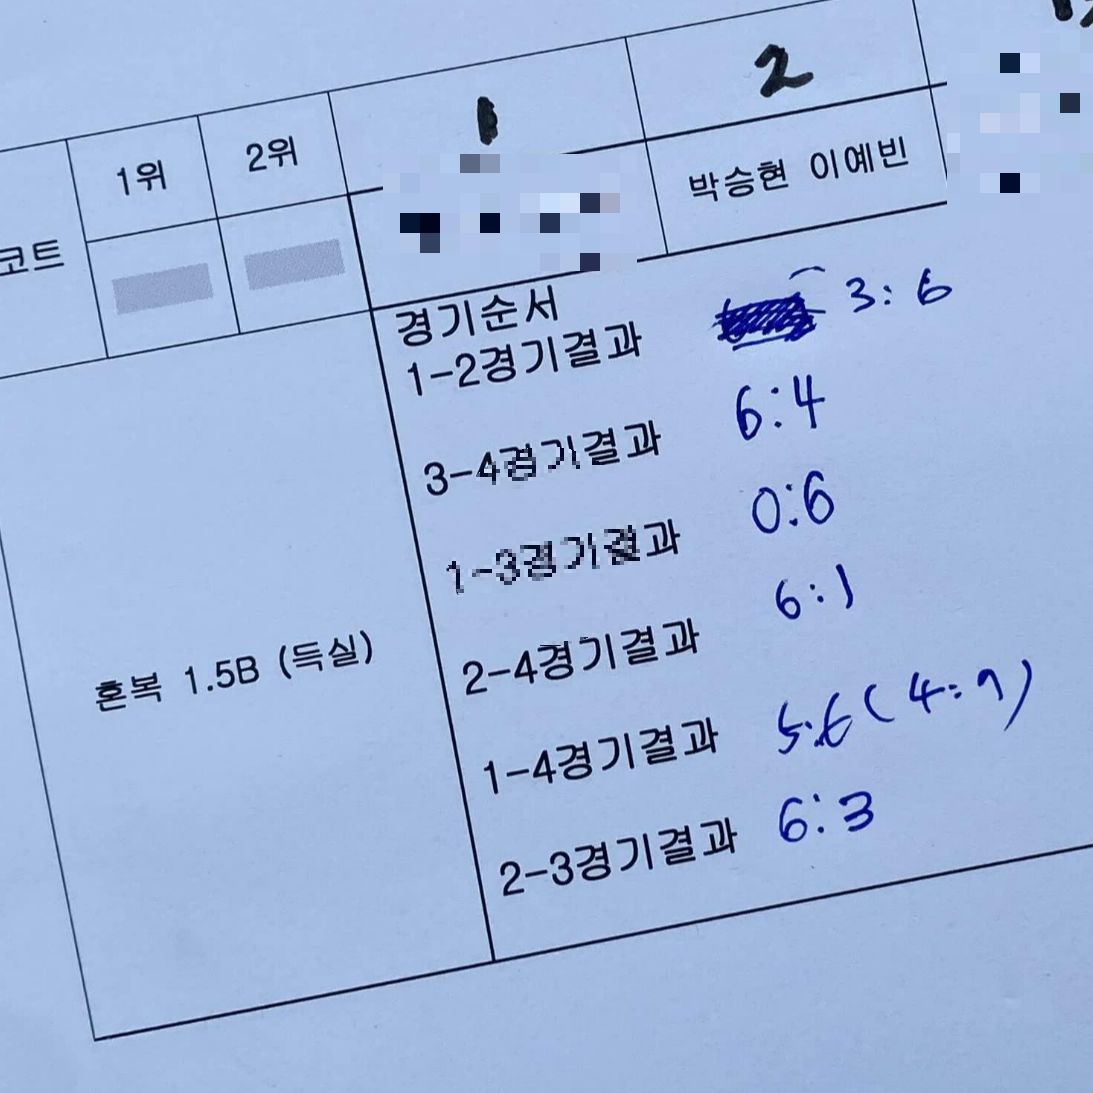 1 2
코트 1위 2위 박승현 이예빈
경기순서
1-2경기결과 3:6
3-4경기결과 6:4
1-3경기결과 0:6
2-4경기결과 6:1
1-4경기결과 5:6(4:9)
2-3경기결과 6:3
혼복 1.5B (득실)